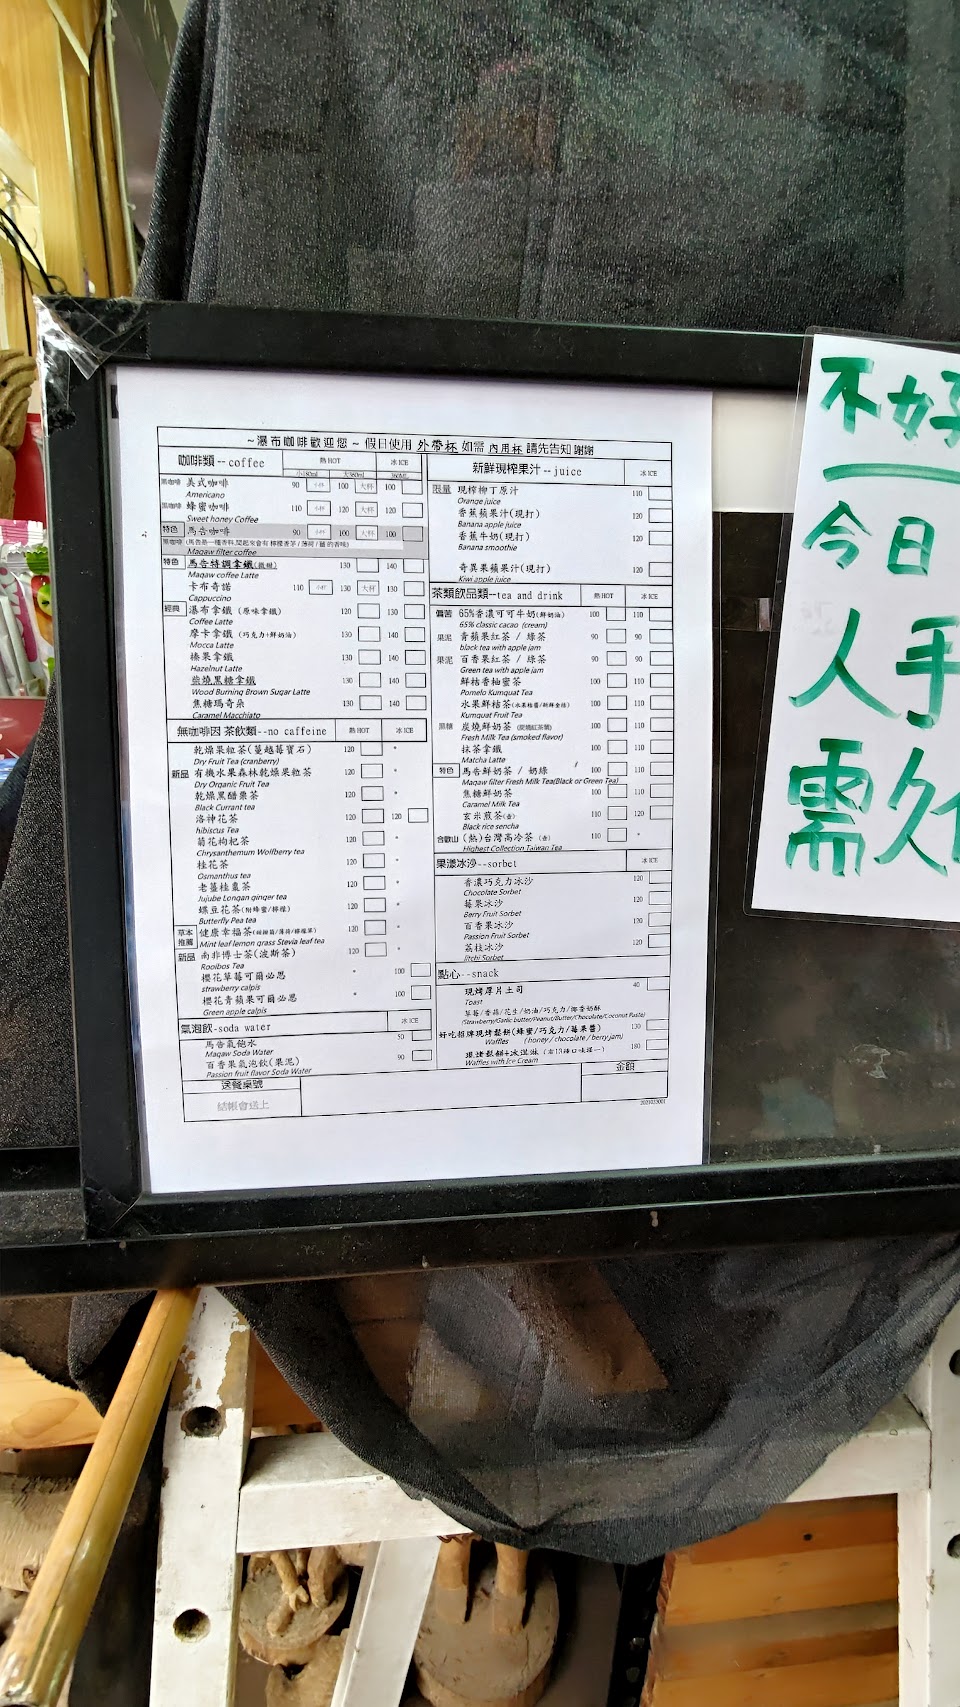 ~瀑布咖啡歡迎您~ 假日使用 外帶杯 如需 內用杯 請先告知 謝謝
咖啡類--coffee 熱 HOT 冰 ICE
小180ml 大360ml 360ml
黑咖啡 美式咖啡 90 小杯 100 大杯 100
Americano
黑咖啡 蜂蜜咖啡 110 小杯 120 大杯 120
Sweet honey Coffee
特色 馬告咖啡 90 小杯 100 大杯 100
黑咖啡 (馬告是一種香料,聞起來會有 檸檬香茅 / 薄荷 / 薑 的香味)
Maqaw filter coffee
特色 馬告特調拿鐵(微甜) 130 140
Maqaw coffee Latte
卡布奇諾 110 小杯 130 大杯 130
Cappuccino
經典 瀑布拿鐵 (原味拿鐵) 120 130
Coffee Latte
摩卡拿鐵 (巧克力+鮮奶油) 130 140
Mocca Latte
榛果拿鐵 130 140
Hazelnut Latte
柴燒黑糖拿鐵 130 140
Wood Burning Brown Sugar Latte
焦糖瑪奇朵 130 140
Caramel Macchiato
無咖啡因 茶飲類--no caffeine 熱 HOT 冰 ICE
乾燥果粒茶(蔓越莓寶石) 120
Dry Fruit Tea (cranberry)
新品 有機水果森林乾燥果粒茶 120 *
Dry Organic Fruit Tea
乾燥黑醋栗茶 120 *
Black Currant tea
洛神花茶 120 120
hibiscus Tea
菊花枸杞茶 120 *
Chrysanthemum Wolfberry tea
桂花茶 120 *
Osmanthus tea
老薑桂棗茶 120 *
Jujube Longan ginger tea
蝶豆花茶(附蜂蜜/檸檬) 120 *
Butterfly Pea tea
草本推薦 健康幸福茶(甜菊葉/薄荷/檸檬草) 120 *
Mint leaf lemon grass Stevia leaf tea
新品 南非博士茶(波斯茶) 120 *
Rooibos Tea
櫻花草莓可爾必思 * 100
strawberry calpis
櫻花青蘋果可爾必思 * 100
Green apple calpis
氣泡飲-soda water 冰 ICE
馬告氣飽水 50
Maqaw Soda Water
百香果氣泡飲(果泥) 90
Passion fruit flavor Soda Water
送餐桌號
結帳會送上
新鮮現榨果汁--juice 冰 ICE
限量 現榨柳丁原汁 110
Orange juice
香蕉蘋果汁(現打) 120
Banana apple juice
香蕉牛奶(現打) 120
Banana smoothie
奇異果蘋果汁(現打) 120
Kiwi apple juice
茶類飲品類--tea and drink 熱 HOT 冰 ICE
偏苦 65%香濃可可牛奶(鮮奶油) 100 110
65% classic cacao (cream)
果泥 青蘋果紅茶 / 綠茶 90 90
black tea with apple jam
果泥 百香果紅茶 / 綠茶 90 90
Green tea with apple jam
鮮桔香柚蜜茶 100 110
Pomelo Kumquat Tea
水果鮮桔茶(水果桔醬/新鮮金桔) 100 110
Kumquat Fruit Tea
黑糖 炭燒鮮奶茶 (炭燒紅茶葉) 100 110
Fresh Milk Tea (smoked flavor)
抹茶拿鐵 100 110
Matcha Latte
特色 馬告鮮奶茶 / 奶綠 100 110
Maqaw filter Fresh Milk Tea(Black or Green Tea)
焦糖鮮奶茶 100 110
Caramel Milk Tea
玄米煎茶(壺) 110 120
Black rice sencha
合歡山 (熱)台灣高冷茶 (壺) 110 *
Highest Collection Taiwan Tea
果漾冰沙--sorbet 冰 ICE
香濃巧克力冰沙 120
Chocolate Sorbet
莓果冰沙 120
Berry Fruit Sorbet
百香果冰沙 120
Passion Fruit Sorbet
荔枝冰沙 120
litchi Sorbet
點心--snack
現烤厚片土司 40
Toast
草莓/香蒜/花生/奶油/巧克力/椰香奶酥
(Strawberry/Garlic butter/Peanut/Butter/Chocolate/Coconut Paste)
好吃招牌現烤鬆餅(蜂蜜/巧克力/莓果醬) 130
Waffles (honey / chocolate / berry jam)
現烤鬆餅+冰淇淋 (有13種口味擇一) 180
Waffles with Ice Cream
金額
不好
今日
人手
需久